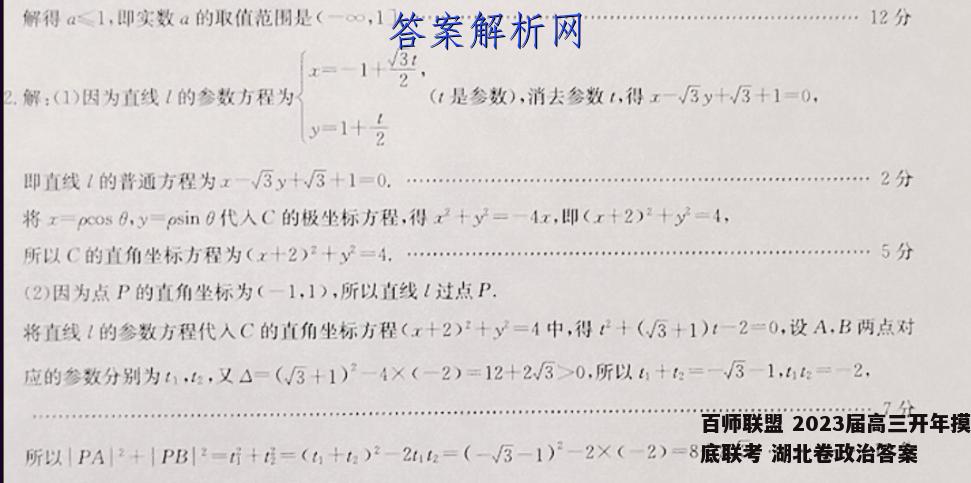 解得 a≤1,即实数 a 的取值范围是(-∞,1] ………… 12 分
答案解析网
2.解:(1)因为直线 l 的参数方程为 { x=-1+√3t/2, y=1+t/2 (t 是参数),消去参数 t,得 x-√3y+√3+1=0,
即直线 l 的普通方程为 x-√3y+√3+1=0. ………… 2 分
将 x=ρcos θ,y=ρsin θ代入C 的极坐标方程,得 x²+y²=-4x,即(x+2)²+y²=4,
所以 C 的直角坐标方程为(x+2)²+y²=4. ………… 5 分
(2)因为点 P 的直角坐标为(-1,1),所以直线 l 过点 P.
将直线 l 的参数方程代入C 的直角坐标方程(x+2)²+y²=4 中,得 t²+(√3+1)t-2=0,设 A,B 两点对
应的参数分别为 t₁,t₂,又 Δ=(√3+1)²-4×(-2)=12+2√3>0,所以 t₁+t₂=-√3-1,t₁t₂=-2,
………… 7 分
所以|PA|²+|PB|²=t₁²+t₂²=(t₁+t₂)²-2t₁t₂=(-√3-1)²-2×(-2)=8
百师联盟 2023届高三开年摸
底联考 湖北卷政治答案